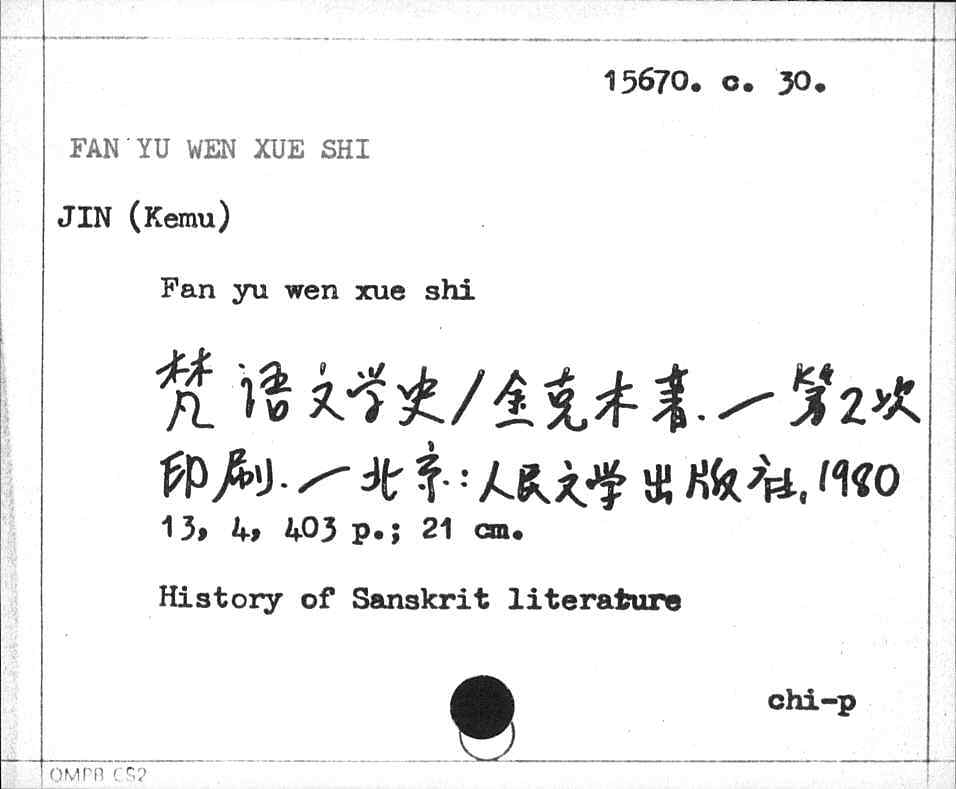 15670. c. 30.
FAN YU WEN XUE SHI
JIN (Kemu)
Fan yu wen xue shi
梵语文学史/金克木著.—第2次
印刷.—北京:人民文学出版社,1980
13, 4, 403 p.; 21 cm.
History of Sanskrit literature
chi-p
OMPB CS2